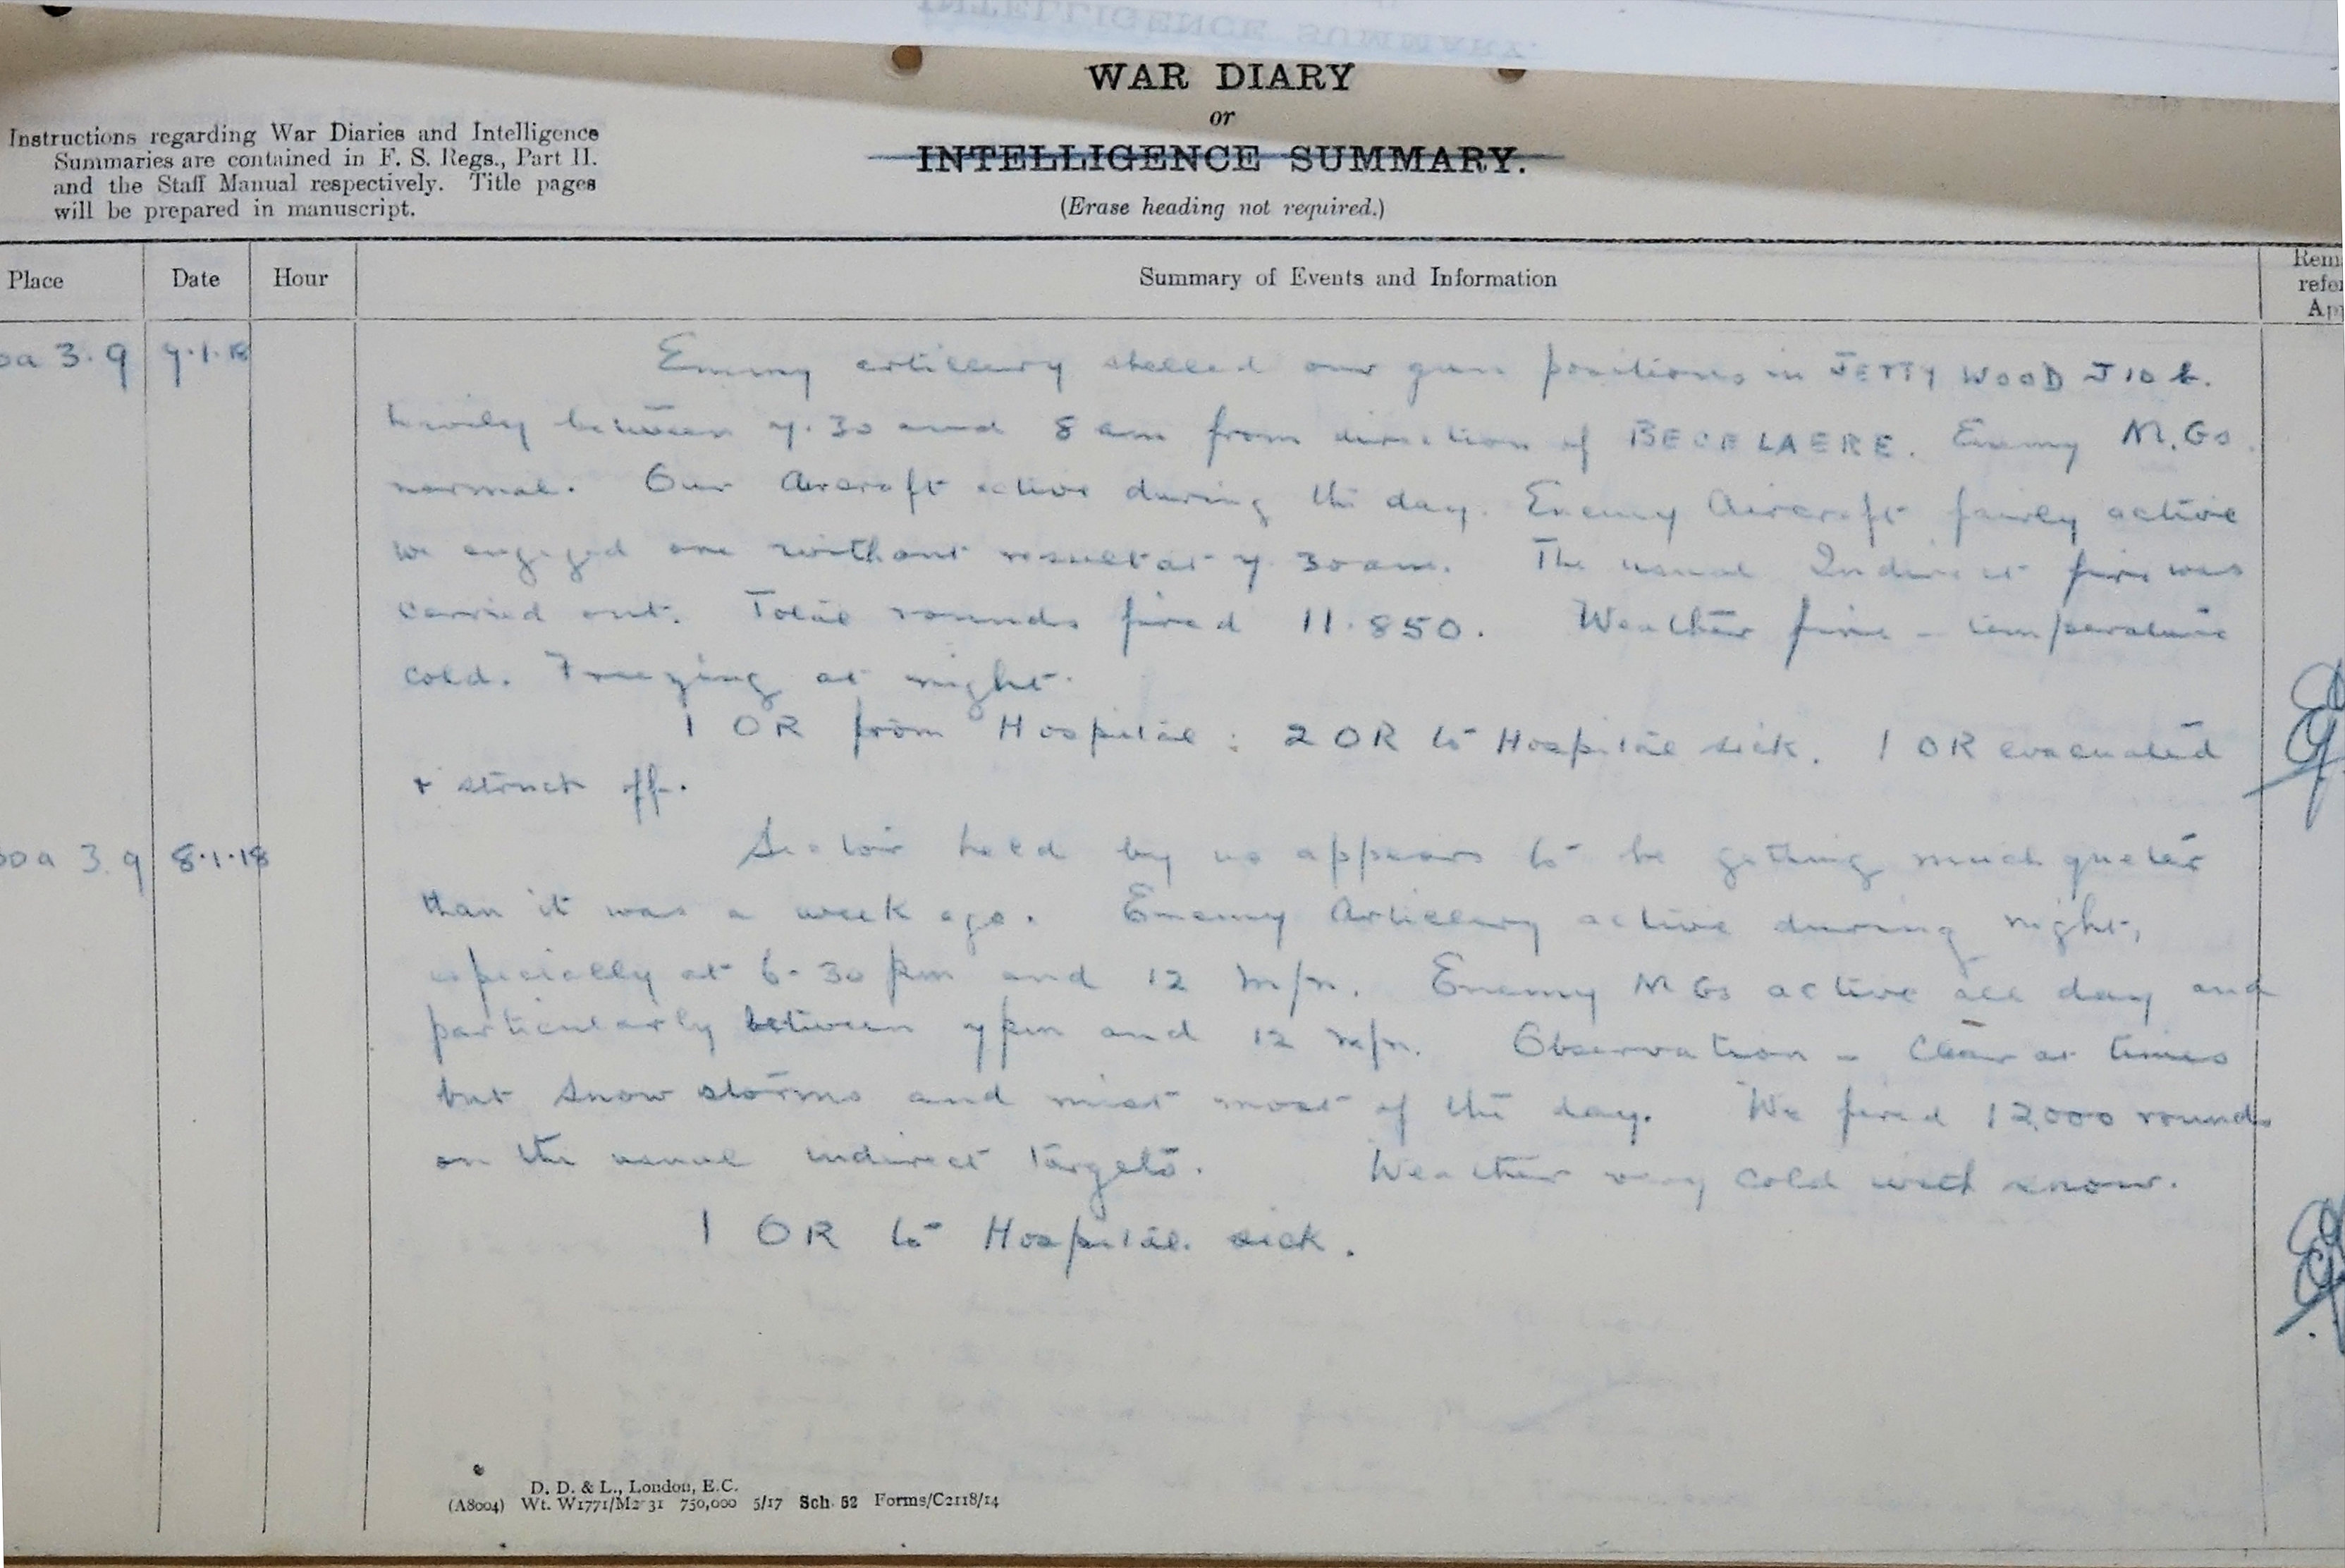 WAR DIARY
or
INTELLIGENCE SUMMARY.
(Erase heading not required.)
Instructions regarding War Diaries and Intelligence
Summaries are contained in F. S. Regs., Part II.
and the Staff Manual respectively. Title pages
will be prepared in manuscript.
Place Date Hour Summary of Events and Information
a 3.9 7.1.18 Enemy artillery shelled our gun positions in JETTY WOOD J 10 b.
heavily between 7.30 and 8 am from direction of BECELAERE. Enemy M.Gs
normal. Our Aircraft active during the day. Enemy Aircraft fairly active
we engaged one without result at 7.30 am. The usual Indirect fire was
carried out. Total rounds fired 11.850. Weather fine - temperature
cold. Freezing at night.
1 OR from Hospital : 2 OR to Hospital sick. 1 OR evacuated
+ struck off.
a 3.9 8.1.18 Sector held by us appears to be getting much quieter
than it was a week ago. Enemy Artillery active during night,
especially at 6-30 pm and 12 m/n. Enemy MGs active all day and
particularly between 7 pm and 12 m/n. Observation - Clear at times
but snow storms and mist most of the day. We fired 12,000 rounds
on the usual indirect targets. Weather very cold with snow.
1 OR to Hospital sick.
D. D. & L., London, E.C.
(A8004) Wt. W1771/M2 31 750,000 5/17 Sch. 52 Forms/C2118/14